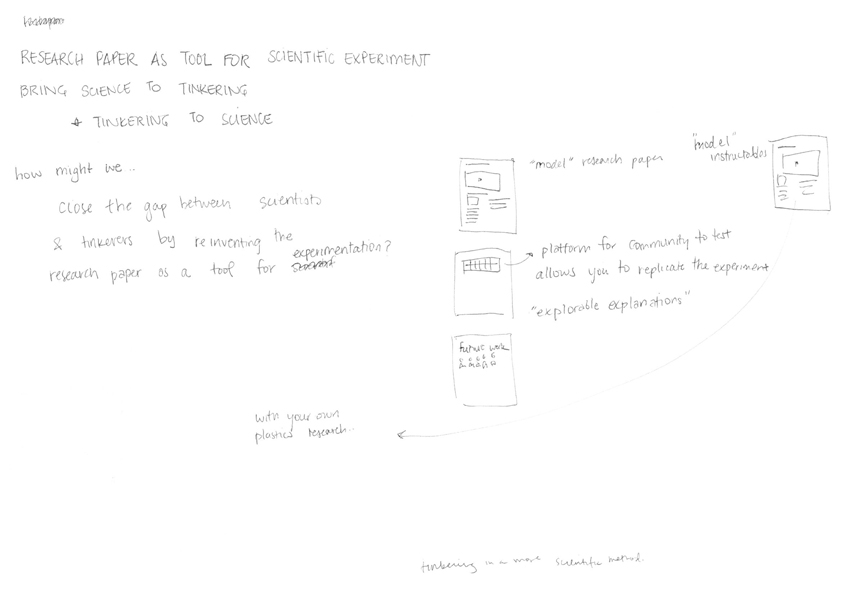 RESEARCH PAPER AS TOOL FOR SCIENTIFIC EXPERIMENT
BRING SCIENCE TO TINKERING
+ TINKERING TO SCIENCE
how might we...
close the gap between scientists
& tinkerers by reinventing the
research paper as a tool for experimentation?
"model" research paper
"model"
instructables
platform for community to test
allows you to replicate the experiment
"explorable explanations"
future work
with your own
plastics research...
tinkering in a more scientific method.